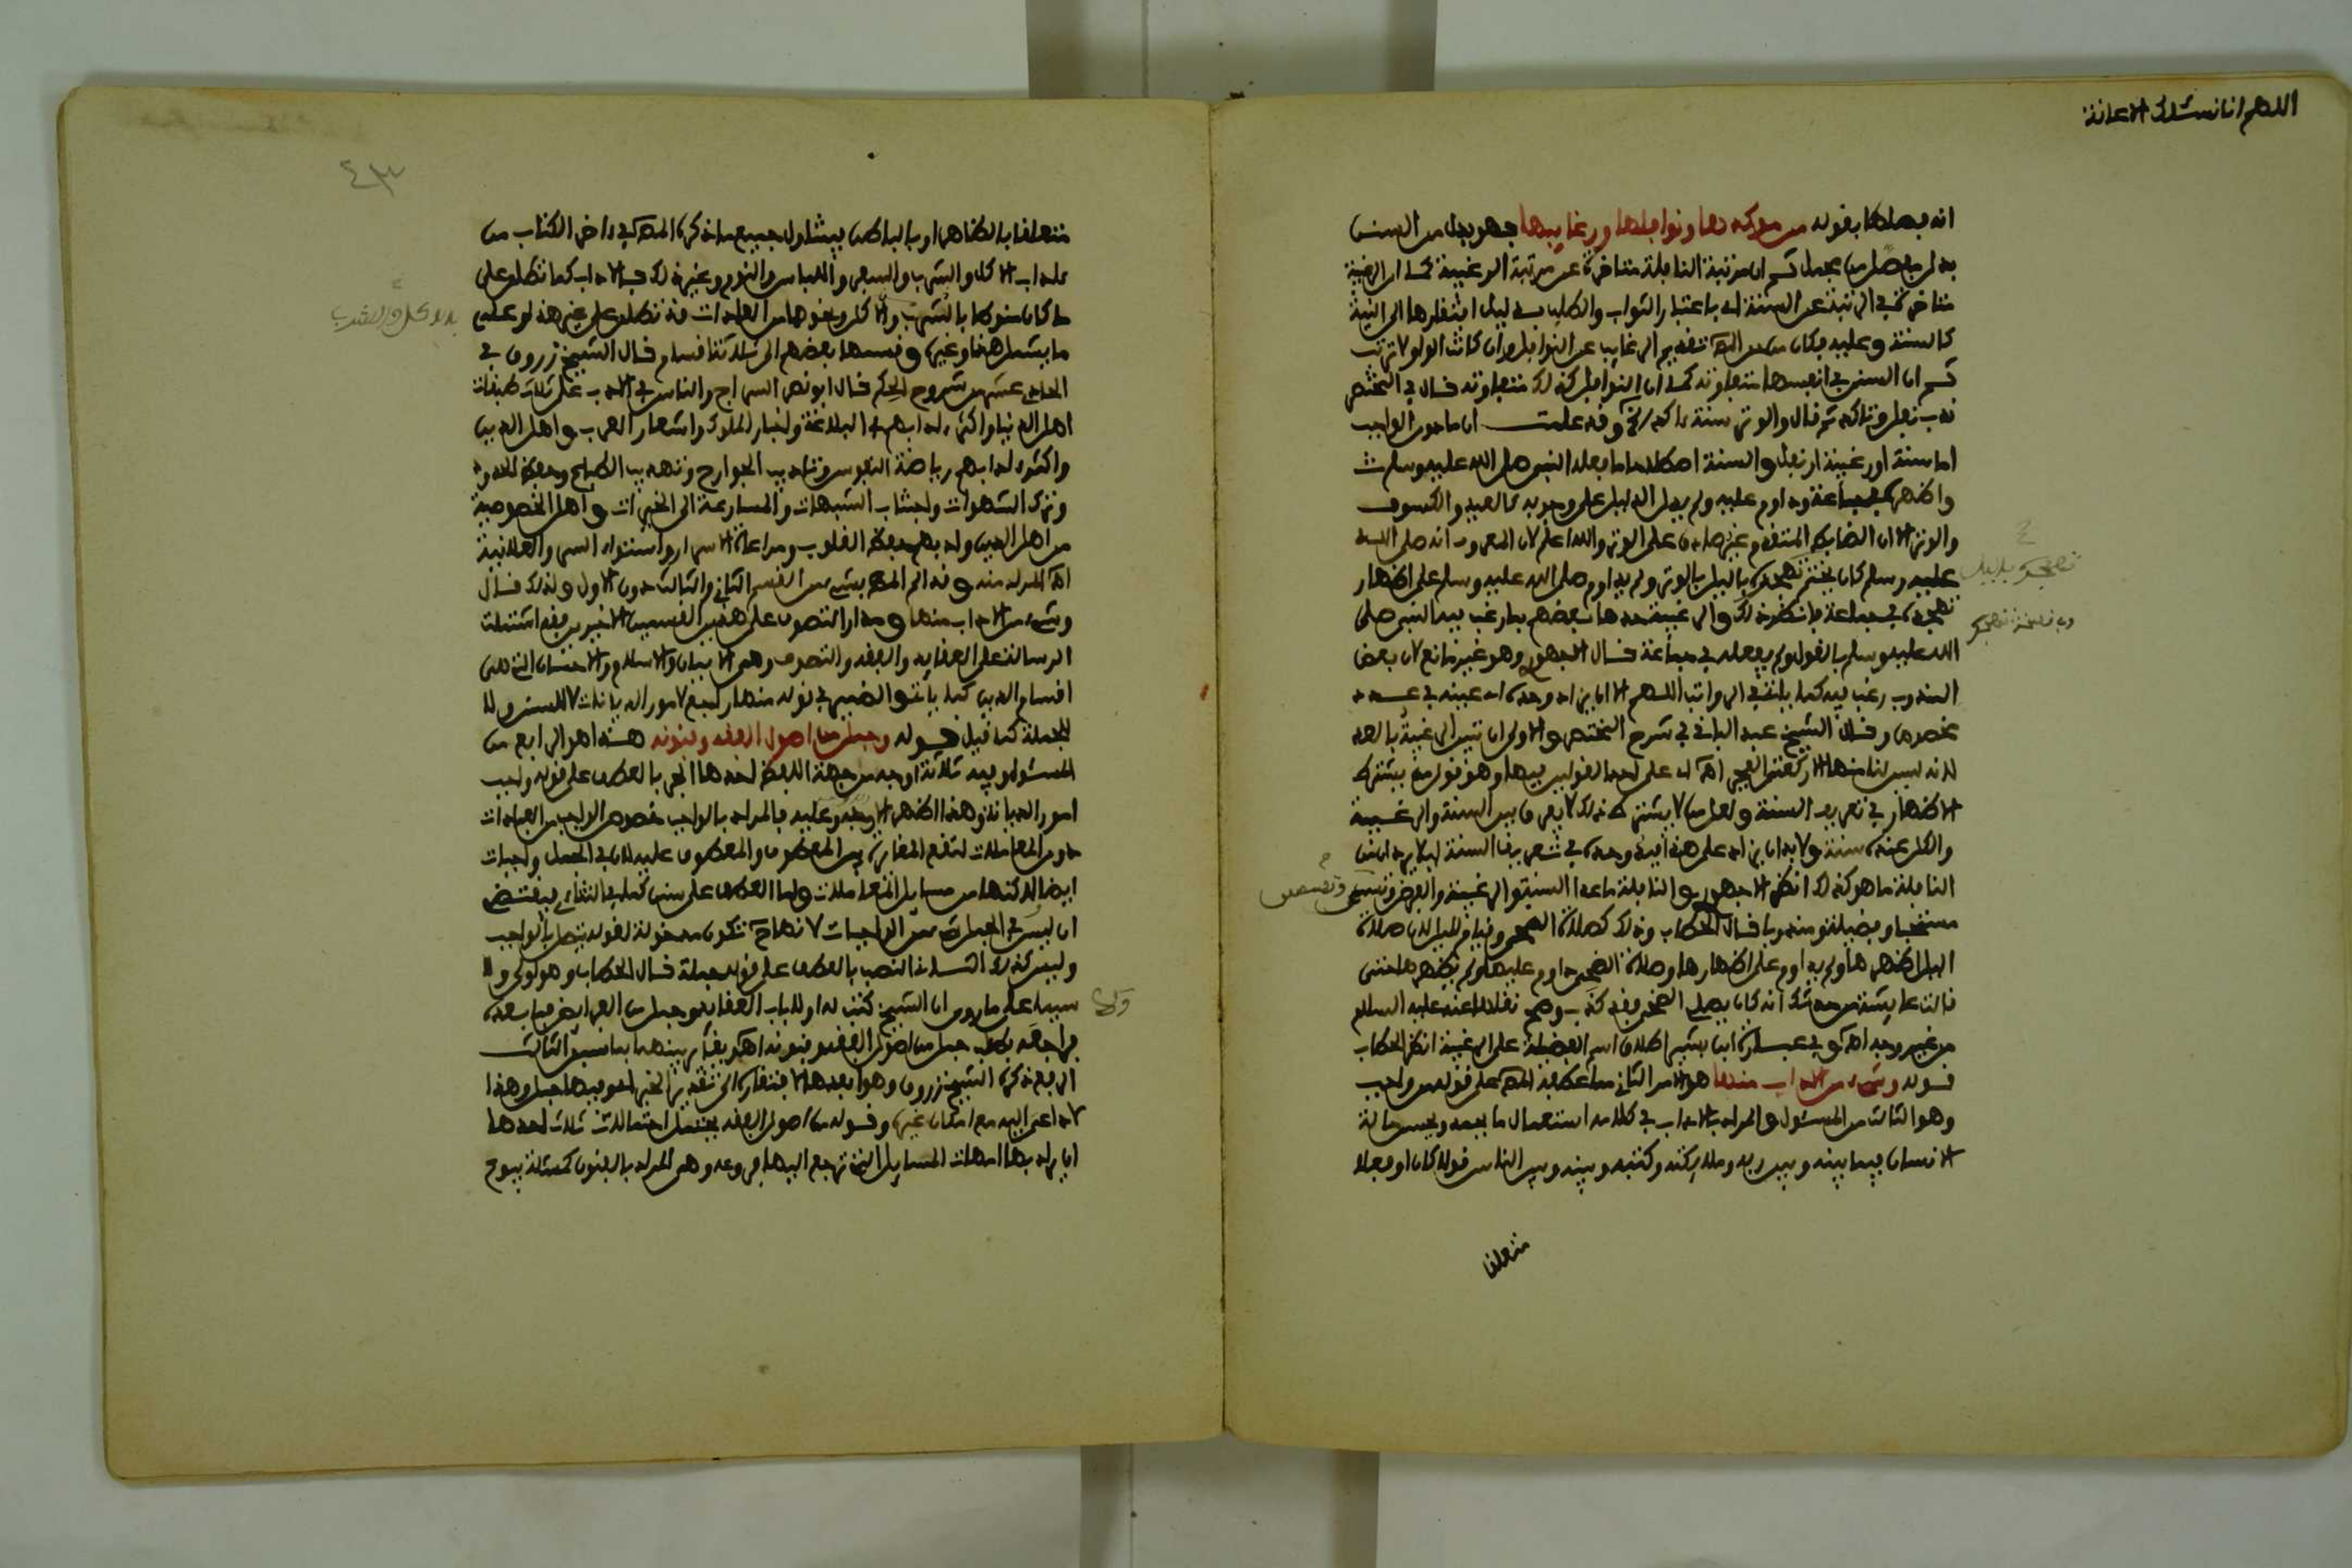 اللهم انا نسئلك الاعانة
انه بصلها بقوله من مؤكدها ونوافلها ورغايبها فهو بدل من السنن
بدل مفصل من مجمل ثم ان مرتبة النافلة متاخرة عن مرتبة الرغيبة كما ان الرغيبة
متاخرة في الرتبة عن السنة اي باعتبار الثواب والطلب في ليل افتقارها الى النية
كالسنة وعليه فكان من حق المص تقديم الرغايب عن النوافل وان كانت الواو لا ترتب
ثم ان السنن في انفسها متفاوتة كما ان النوافل كذلك متفاوتة قال في المختصر
ندب نفل وتاكد ثم قال والوتر سنة اكد وقد علمت ان ما دون الواجب
اما سنة او رغيبة او نفل والسنة اصطلاحا ما فعله النبي صلى الله عليه وسلم
واظهره في جماعة وداوم عليه ولم يدل الدليل على وجوبه كالعيد والكسوف
والوتر الا ان الضابط المتقدم غير صادق على الوتر والله اعلم لان المعروف انه صلى الله
عليه وسلم كان يختم تهجده بالليل بالوتر ولم يداوم صلى الله عليه وسلم على اظهار
تهجده في جماعة فانظر ذلك والرغيبة حدها بعضهم بما رغب فيه النبي صلى
الله عليه وسلم بالقول ولم يفعله في جماعة قال الاجهوري وهو غير مانع لان بعض
المندوب رغب فيه كما ياتي في الرواتب اللهم الا ان يزاد وحده اي عينه في عدد
مخصوص وقال الشيخ عبد الباقي في شرح المختصر والاولى ان تبين الرغيبة بالعد
لانه ليس لنا منها الا ركعتي الفجر اهـ اي على احد القولين فيها وهو قول من يشترط
الاظهار في تعريف السنة ولعل من لا يشترط ذلك لا يفرق بين السنة والرغيبة
والكل عنده سنة ولا بد ان يزاد على هذا قيد وحده في تعريف السنة ليلا يرد ان من
النافلة ما هو كذلك انظر الاجهوري والنافلة ما عدا السنة والرغيبة والفرض وتسمى
مستحبا وفضيلة ومندوبا قال الحطاب وذلك كصلاة الضحى وقيام الليل لان صلاة
الليل اظهرها ولم يداوم على اظهارها وصلاة الضحى داوم عليها ولم يظهرها حتى
قالت عايشة من حدثك انه كان يصلي الضحى فقد كذب وصح نقلها عنه عليه السلام
من غير وجه اهـ وفي عبارة ابن بشير اطلاق اسم الفضيلة على الرغيبة انظر الحطاب
قوله وشيء من الاداب منها هو الامر الثاني مما عطفه المص على قوله من واجب
وهو الثالث من المسئول والمراد بالاداب في كلامه استعمال ما يحمد ويحسن حالة
الانسان فيما بينه وبين ربه وملايكته وكتبه وبينه وبين الناس قولا كان او فعلا
متعلقا
٤٣
متعلقا بالظاهر او بالباطن فيشاول جميع ما ذكره المص في اخر الكتاب من
اداب الاكل والشرب والسفر واللباس والنوم وغير ذلك والاداب كما تطلق على
ما كان منوطا بالشرب والاكل ونحوها من العادات قد تطلق على غير هذا وعليه
ما يشمل هذا وغيره وقسمها بعضهم الى ثلاثة اقسام قال الشيخ زروق في
الحادي عشر من شروح الحكم قال ابو نصر السراج والناس في الادب على ثلاث طبقات
اهل الدنيا واكثر ادابهم في البلاغة واخبار الملوك واشعار العرب واهل الدين
واكثر ادابهم رياضة النفوس وتاديب الجوارح وتهذيب الطباع وحفظ الحدود
وترك الشهوات واجتناب الشبهات والمسارعة الى الخيرات واهل الخصوصية
من اهل الدين وادبهم حفظ القلوب ومراعاة الاسرار واستواء السر والعلانية
اهـ المراد منه وقد الم المص بشيء من القسم الثاني والثالث دون الاول ولذلك قال
وشيء من الاداب منها ومدار التصوف على هذين القسمين الاخيرين فقد اشتملت
الرسالة على العقايد والفقه والتصوف وهي الايمان والاسلام والاحسان التي هي
اقسام الدين كما ياتي والضمير في قوله منها راجع لامور الديانات لا للسنن ولا
للجملة كما قيل قوله وجمل من اصول الفقه وفنونه هذا هو الرابع من
المسئول وفيه ثلاثة اوجه من جهة اللفظ احدها الجر بالعطف على قوله واجب
امور الديانة وهذا اظهر الاوجه وعليه فالمراد بالواجب خصوص الواجب من العبادات
دون المعاملات لتقع المغايرة بين المعطوف والمعطوف عليه لان في الجمل واجبات
ايضا لكنها من مسايل المعاملات ولما العطف على سنن كما في الثاني فيقتضي
ان ليس في الجمل شيء من الواجبات لانها تكون مدخولة لقوله يتصل بالواجب
وليس كذلك الثاني النصب بالعطف على قوله جملة قال الحطاب وهو اولى ولا
سيما على ما روي ان الشيخ كتب له اولا باب العقايد وجمل من الفرايض فيما بعده
فراجعه يطلب جمل من اصول الفقه وفنونه اهـ ويقرر بينهما بما سبق الثالث
الرفع ذكره الشيخ زروق وهو ابعدها لافتقاره الى تقدير الخبر اي وفيها جمل وهذا
لا داعي اليه مع امكان غيره وقوله من اصول الفقه يحتمل احتمالات ثلاث احدها
ان يراد بها امهات المسايل التي ترجع اليها فروعه وهي المراد بالفنون كمسئلة بيوع